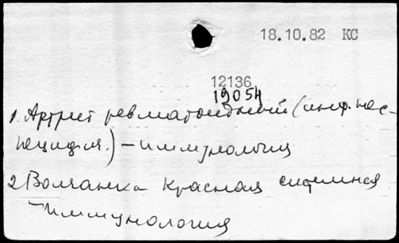 18.10.82 КС
12136
19054
1. Артрит ревматоидный (инф. нес-
пецифич.) – иммунология
2. Волчанка красная системная
– иммунология